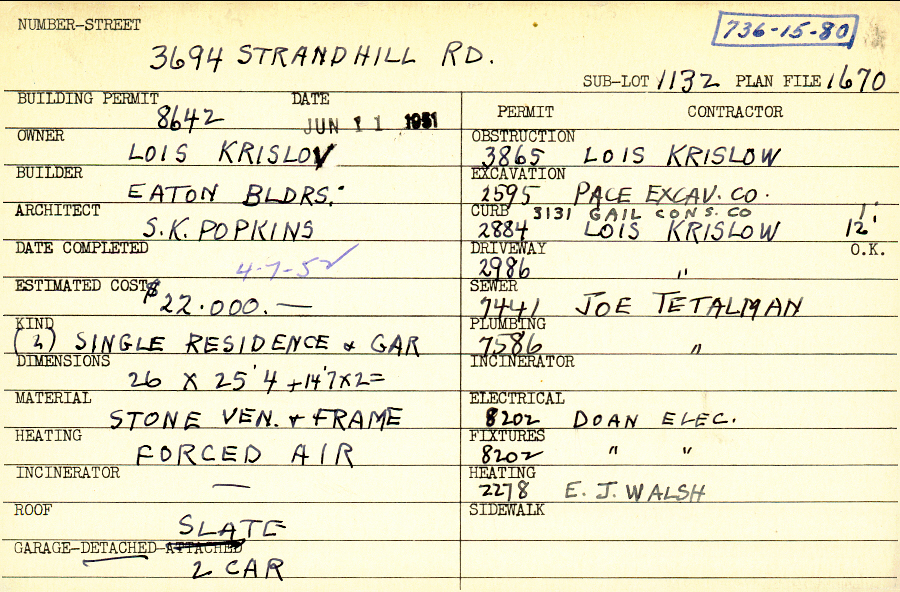 NUMBER-STREET
736-15-80
3694 STRANDHILL RD.
SUB-LOT 1132 PLAN FILE 1670
BUILDING PERMIT DATE
8642 JUN 11 1951
OWNER
LOIS KRISLOV
BUILDER
EATON BLDRS.
ARCHITECT
S.K. POPKINS
DATE COMPLETED
4-7-52
ESTIMATED COST
$22.000.—
KIND
(2) SINGLE RESIDENCE & GAR
DIMENSIONS
26 X 25'4 + 14'7 X 2=
MATERIAL
STONE VEN. & FRAME
HEATING
FORCED AIR
INCINERATOR
—
ROOF
SLATE
GARAGE-DETACHED-ATTACHED
2 CAR
PERMIT CONTRACTOR
OBSTRUCTION
3865 LOIS KRISLOW
EXCAVATION
2595 PACE EXCAV. CO.
CURB 3131 GAIL CONS. CO 1'
2884 LOIS KRISLOW 12'
DRIVEWAY O.K.
2986 "
SEWER
7441 JOE TETALMAN
PLUMBING
7586 "
INCINERATOR
ELECTRICAL
8202 DOAN ELEC.
FIXTURES
8202 " "
HEATING
2278 E. J. WALSH
SIDEWALK